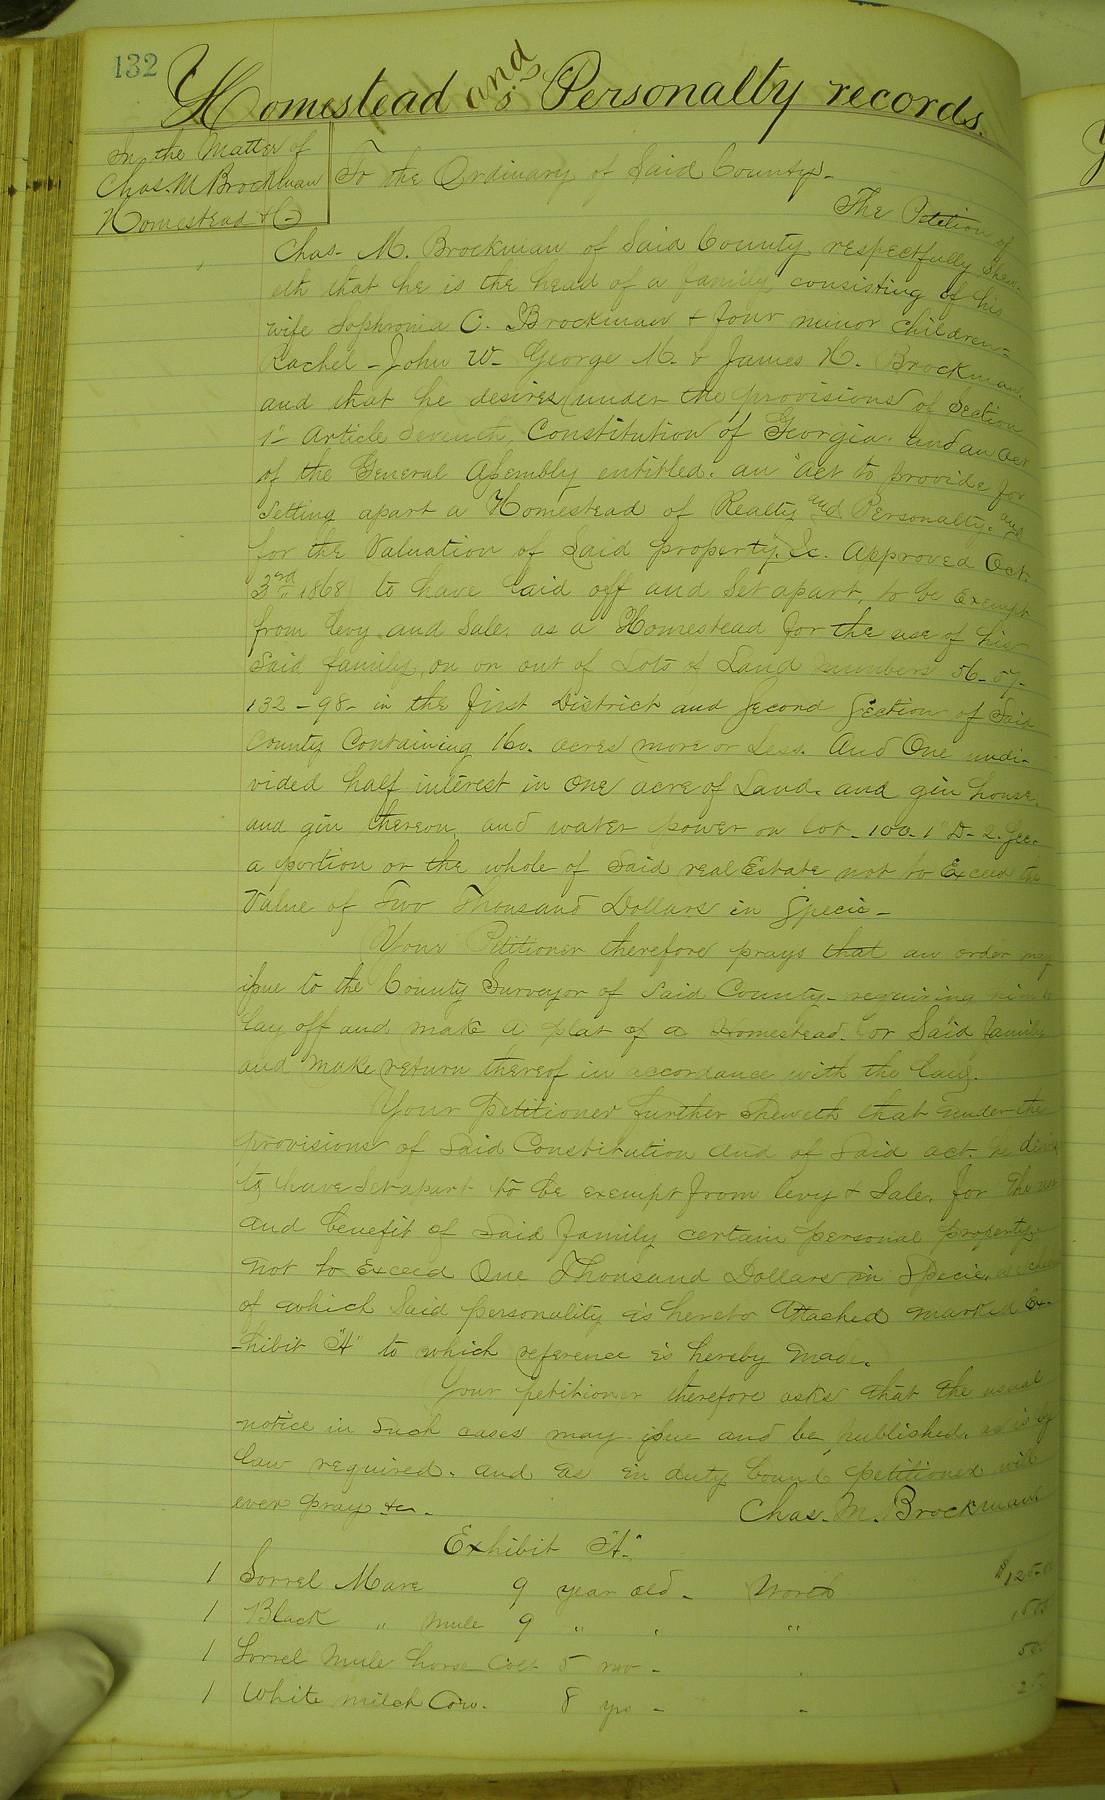 132
Homestead and Personalty records.
In the Matter of
Chas. M Brockman
Homestead &C
To the Ordinary of Said County.
The Petition of
Chas. M. Brockman of Said County respectfully Shew-
eth that he is the head of a family consisting of his
wife Sophronia C. Brockman + four minor children-
Rachel - John W- George M. & James H. Brockman.
and that he desires under the provisions of Section
1- Article Seventh, Constitution of Georgia. and an act
of the General Assembly entitled. an "act to provide for
Setting apart a Homestead of Realty and Personalty. and
for the Valuation of Said property," &c. Approved Oct.
3rd 1868) to have laid off and Set apart, to be Exempt
from levy and Sale, as a Homestead for the use of his
Said family, on or out of Lots of Land numbers 56- 57-
132 - 98- in the first District and Second Section of Said
County Containing 160. acres more or Less. And One undi-
vided half interest in one acre of Land. and gin house.
and gin thereon, and water power on Lot- 100. 1" D- 2. Sec.
a portion or the whole of Said real Estate not to Exceed the
Value of Two Thousand Dollars in Specie -
Your Petitioner therefore prays that an order may
issue to the County Surveyor of Said County- requiring him to
lay off and make a plat of a Homestead. for Said family
and make return thereof in accordance with the law.
Your Petitioner further Sheweth that under the
provisions of Said Constitution and of Said act. he desires
to have Set apart to be exempt from levy + Sale. for the use
and benefit of Said family certain personal property
not to Exceed One Thousand Dollars in Specie. a schedule
of which Said personality is hereto attached marked Ex-
-hibit "A" to which reference is hereby made.
Your petitioner therefore asks that the usual
notice in such cases may issue and be published. as is by
law required. and as in duty bound petitioner will
ever pray &c.
Chas. M. Brockman
Exhibit "A."
1 Sorrel Mare 9 year old - Worth $125.00
1 Black " Mule 9 " " "
1 Sorrel Mule horse Colt 5 mo -
1 White milch Cow. 8 yrs -